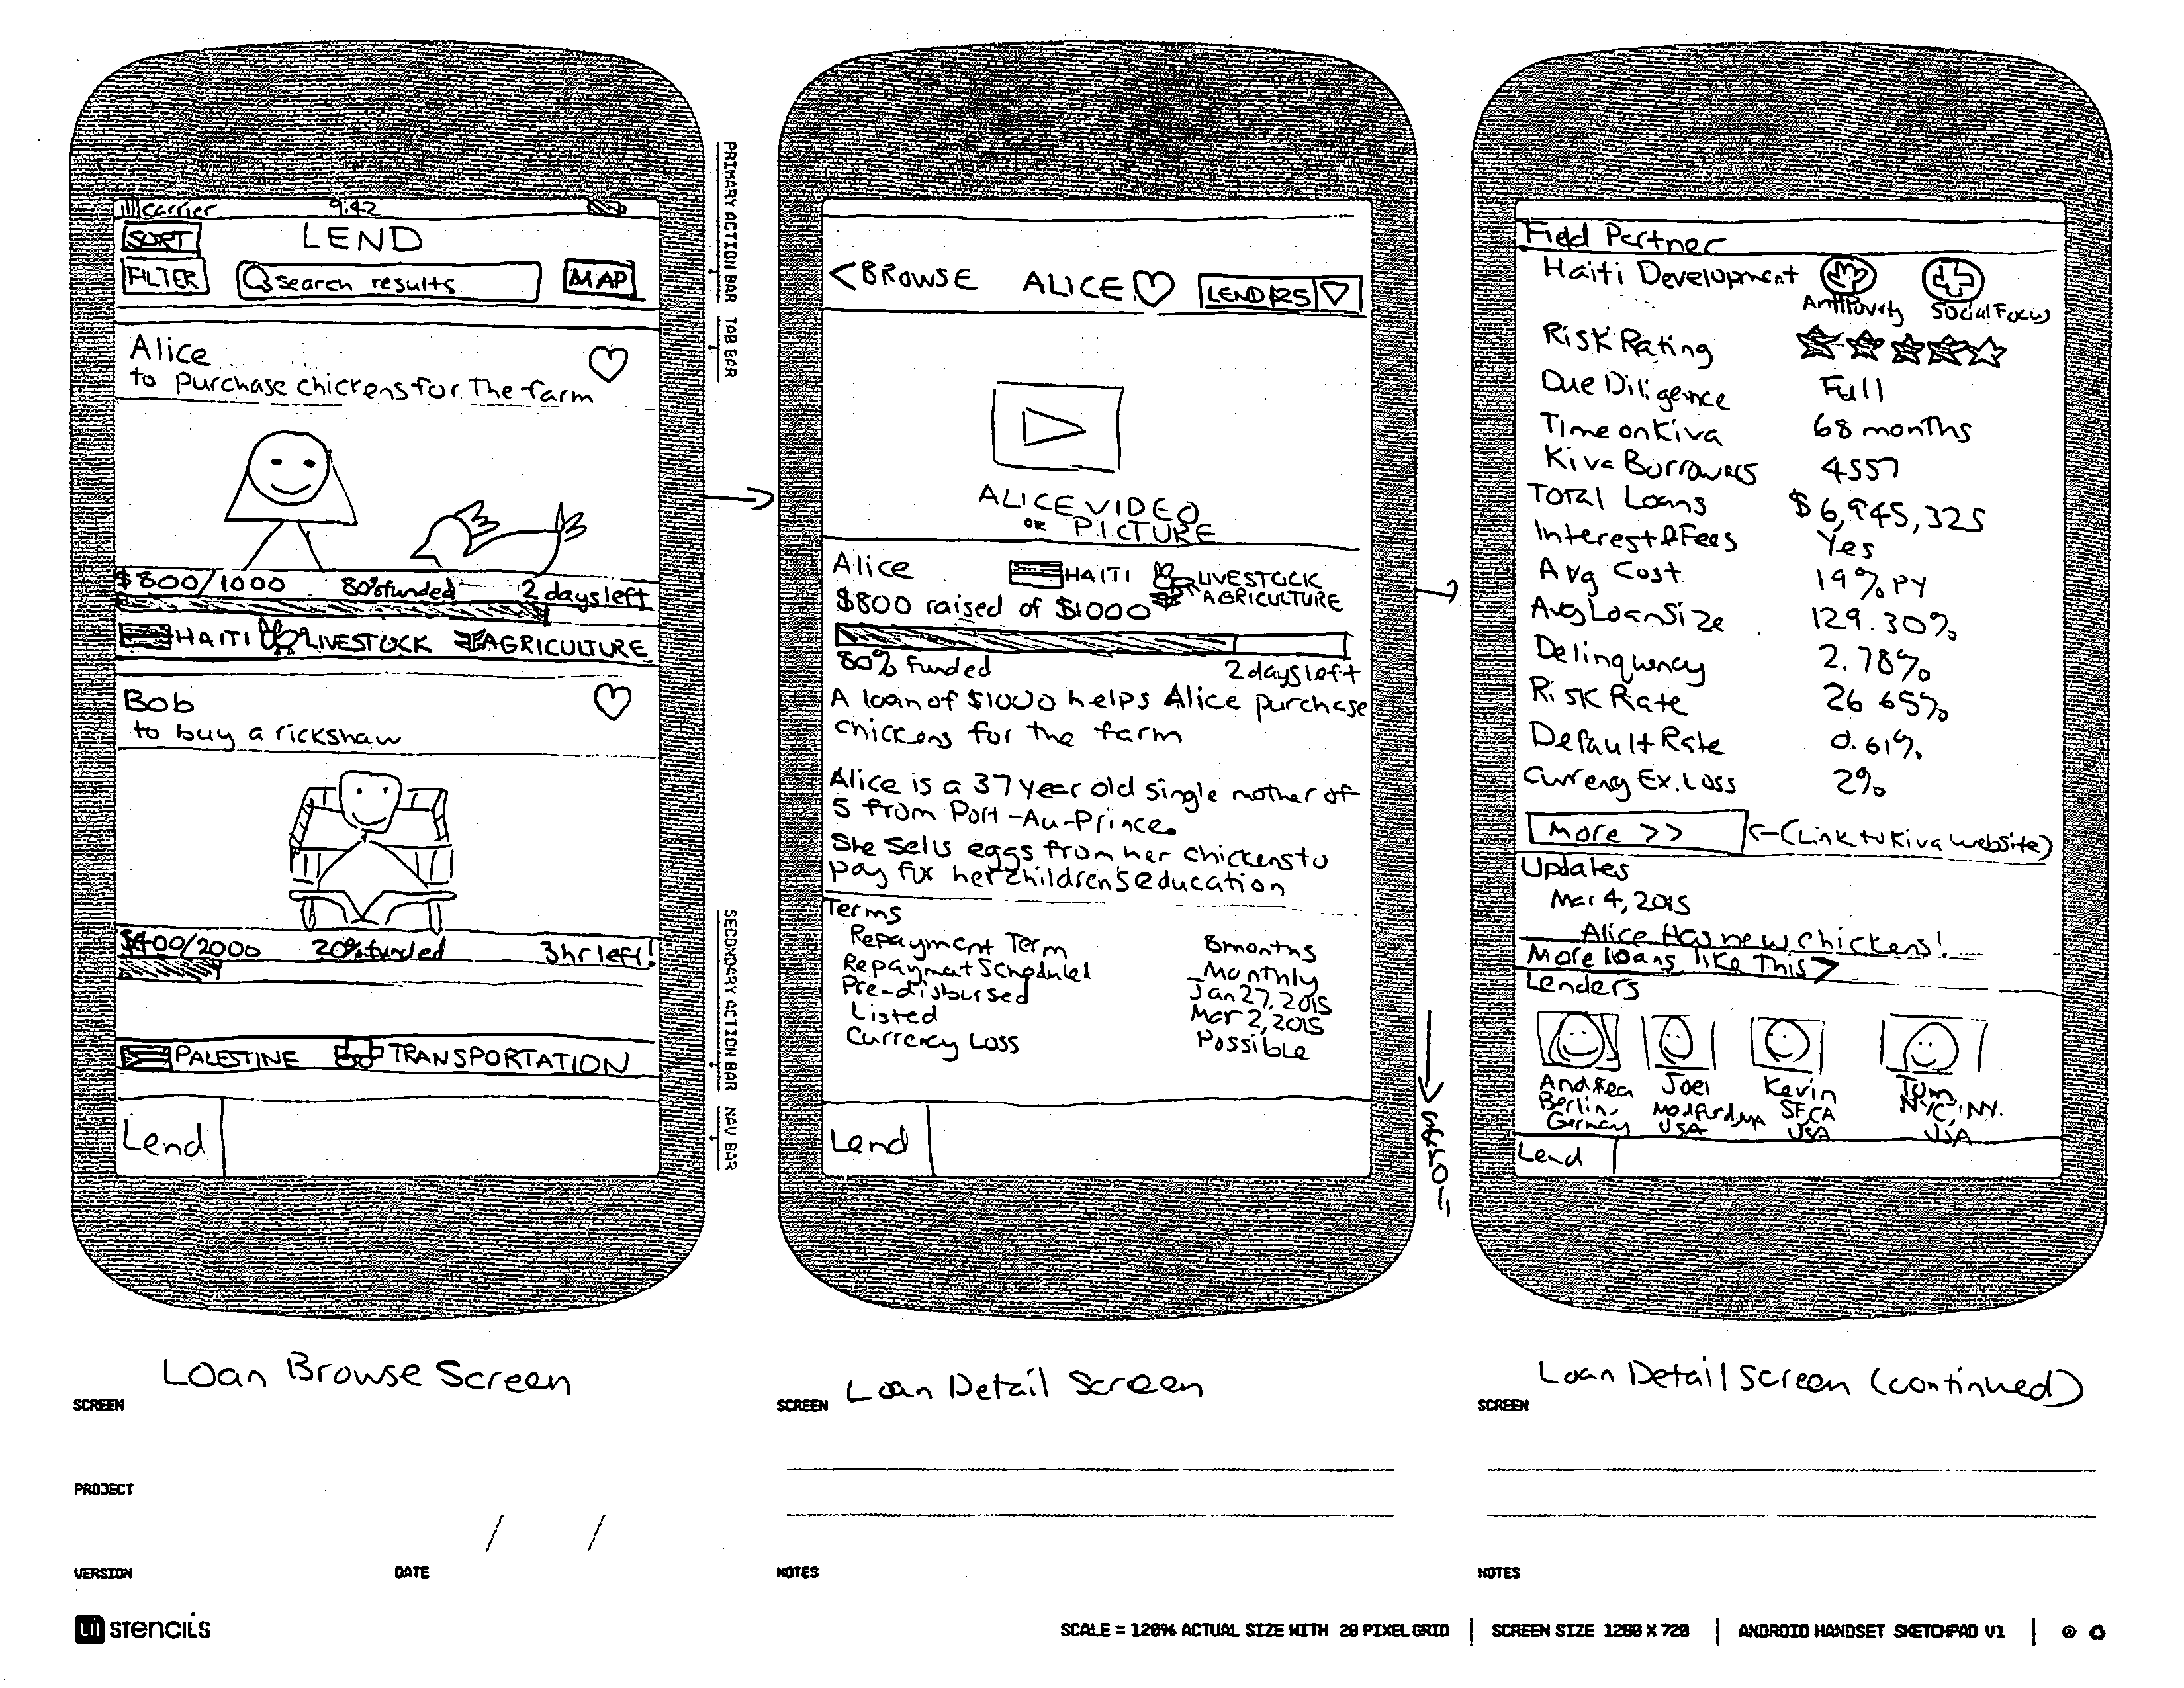 carrier 9:42
SORT LEND
FILTER search results MAP
Alice
to purchase chickens for The farm
$800/1000 80% funded 2 days left
HAITI LIVESTOCK AGRICULTURE
Bob
to buy a rickshaw
$400/2000 20% funded 3hr left!
PALESTINE TRANSPORTATION
Lend
PRIMARY ACTION BAR
TAB BAR
SECONDARY ACTION BAR
NAV BAR
Loan Browse Screen
SCREEN
PROJECT
/ /
VERSION DATE
<BROWSE ALICE LEND $25
ALICE VIDEO
OR PICTURE
Alice HAITI LIVESTOCK
AGRICULTURE
$800 raised of $1000
80% funded 2 days left
A loan of $1000 helps Alice purchase
chickens for the farm
Alice is a 37 year old single mother of
5 from Port-Au-Prince.
She sells eggs from her chickens to
pay for her children's education
Terms
Repayment Term 8 months
Repayment Scheduled Monthly
Pre-disbursed Jan 27, 2015
Listed Mar 2, 2015
Currency Loss Possible
Lend
Loan Detail Screen
SCREEN
NOTES
Field Partner
Haiti Development
AntiPovrty Social Focus
Risk Rating
Due Diligence Full
Time on Kiva 68 months
Kiva Burrowers 4557
Total Loans $6,945,325
Interest & Fees Yes
Avg Cost 19% PY
Avg Loan Size 129.30%
Delinquency 2.78%
Risk Rate 26.65%
Default Rate 0.61%
Currency Ex. Loss 2%
More >> <-(Link to Kiva website)
Updates
Mar 4, 2015
Alice Has new chickens!
More loans like This >
Lenders
Andrea Joel Kevin Tom
Berlin, SF, CA NYC, NY.
Germany USA USA USA
Lend
Loan Detail Screen (continued)
SCREEN
NOTES
UI STENCILS
SCALE = 120% ACTUAL SIZE WITH 20 PIXEL GRID | SCREEN SIZE 1280 X 720 | ANDROID HANDSET SKETCHPAD V1 |